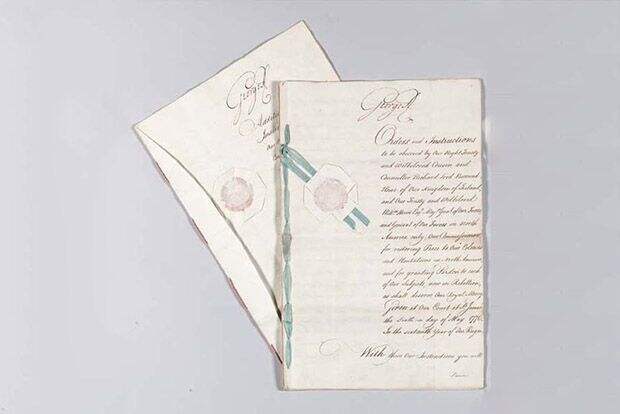 George R
Additio
Instru
George R
Orders and Instructions
to be observed by Our Right Trusty
and Welbeloved Cousin and
Councillor Richard Lord Viscount
Howe of Our Kingdom of Ireland,
and Our Trusty and Welbeloved
Will.m Howe Esq.r Maj.r Gen.l of Our Forces
and General of Our Forces in North
America only, Our Commissioners
for restoring Peace to Our Colonies
and Plantations in North America,
and for granting Pardon to such
of Our Subjects now in Rebellion,
as shall deserve Our Royal Mercy.
Given at Our Court at S.t James's
the Sixth day of May 1776.
In the sixteenth Year of Our Reign.
With these Our Instructions you will